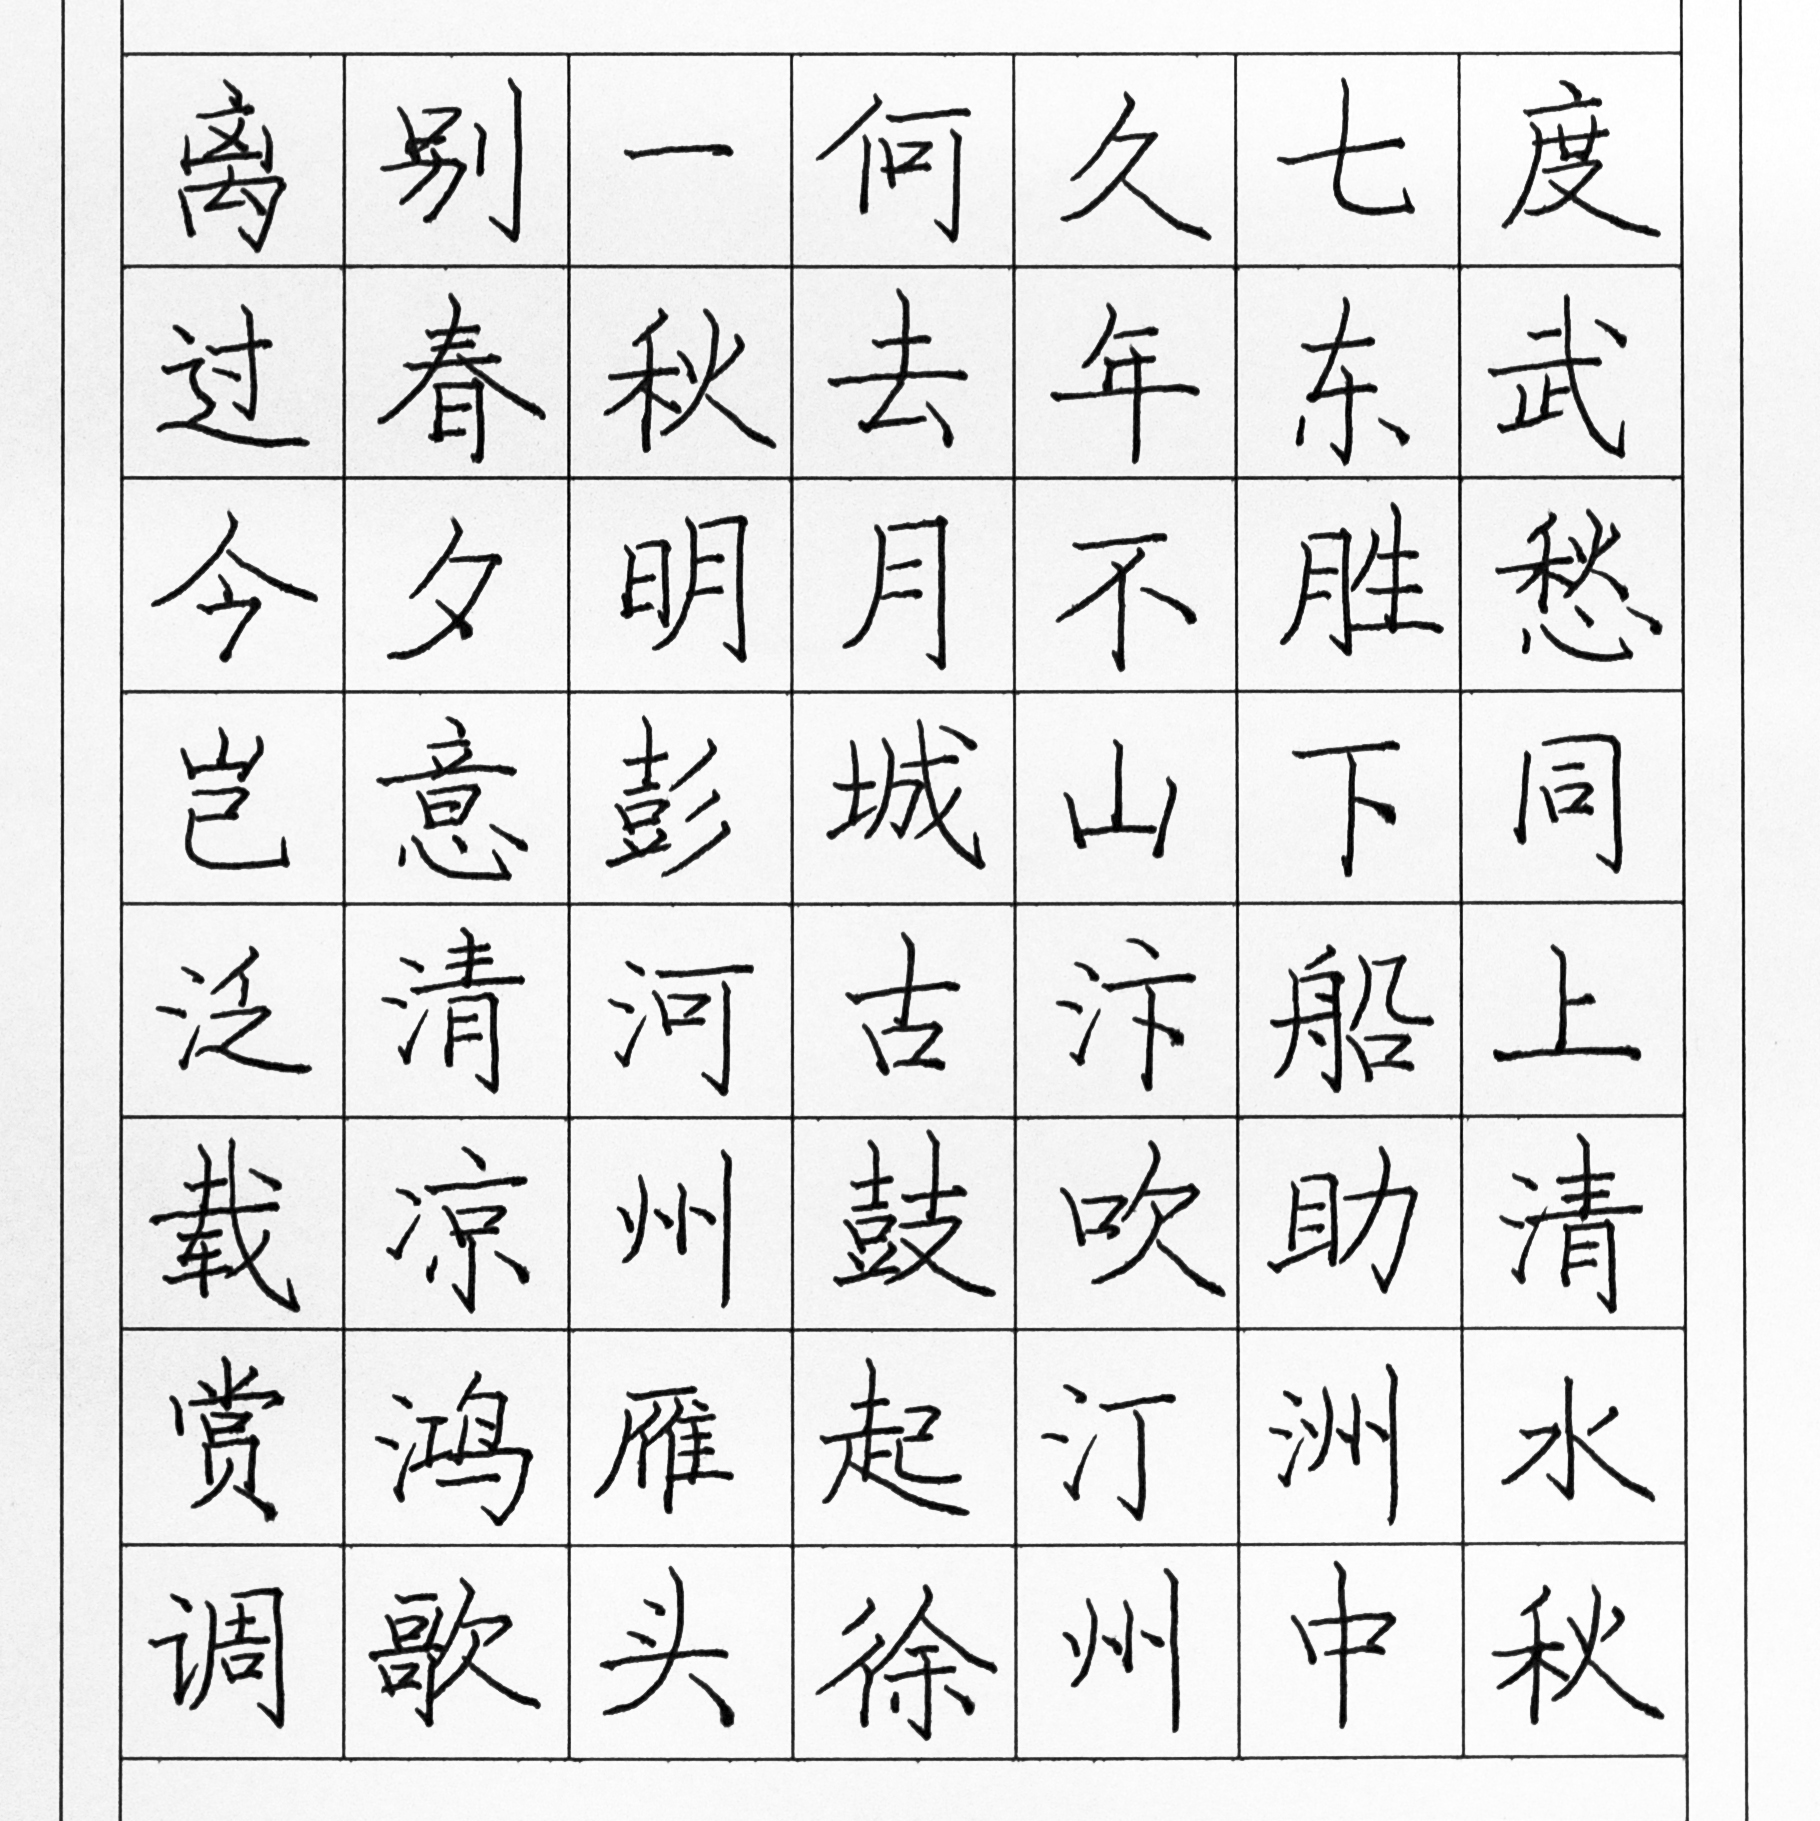 离别一何久七度
过春秋去年东武
今夕明月不胜愁
岂意彭城山下同
泛清河古汴船上
载凉州鼓吹助清
赏鸿雁起汀洲水
调歌头徐州中秋